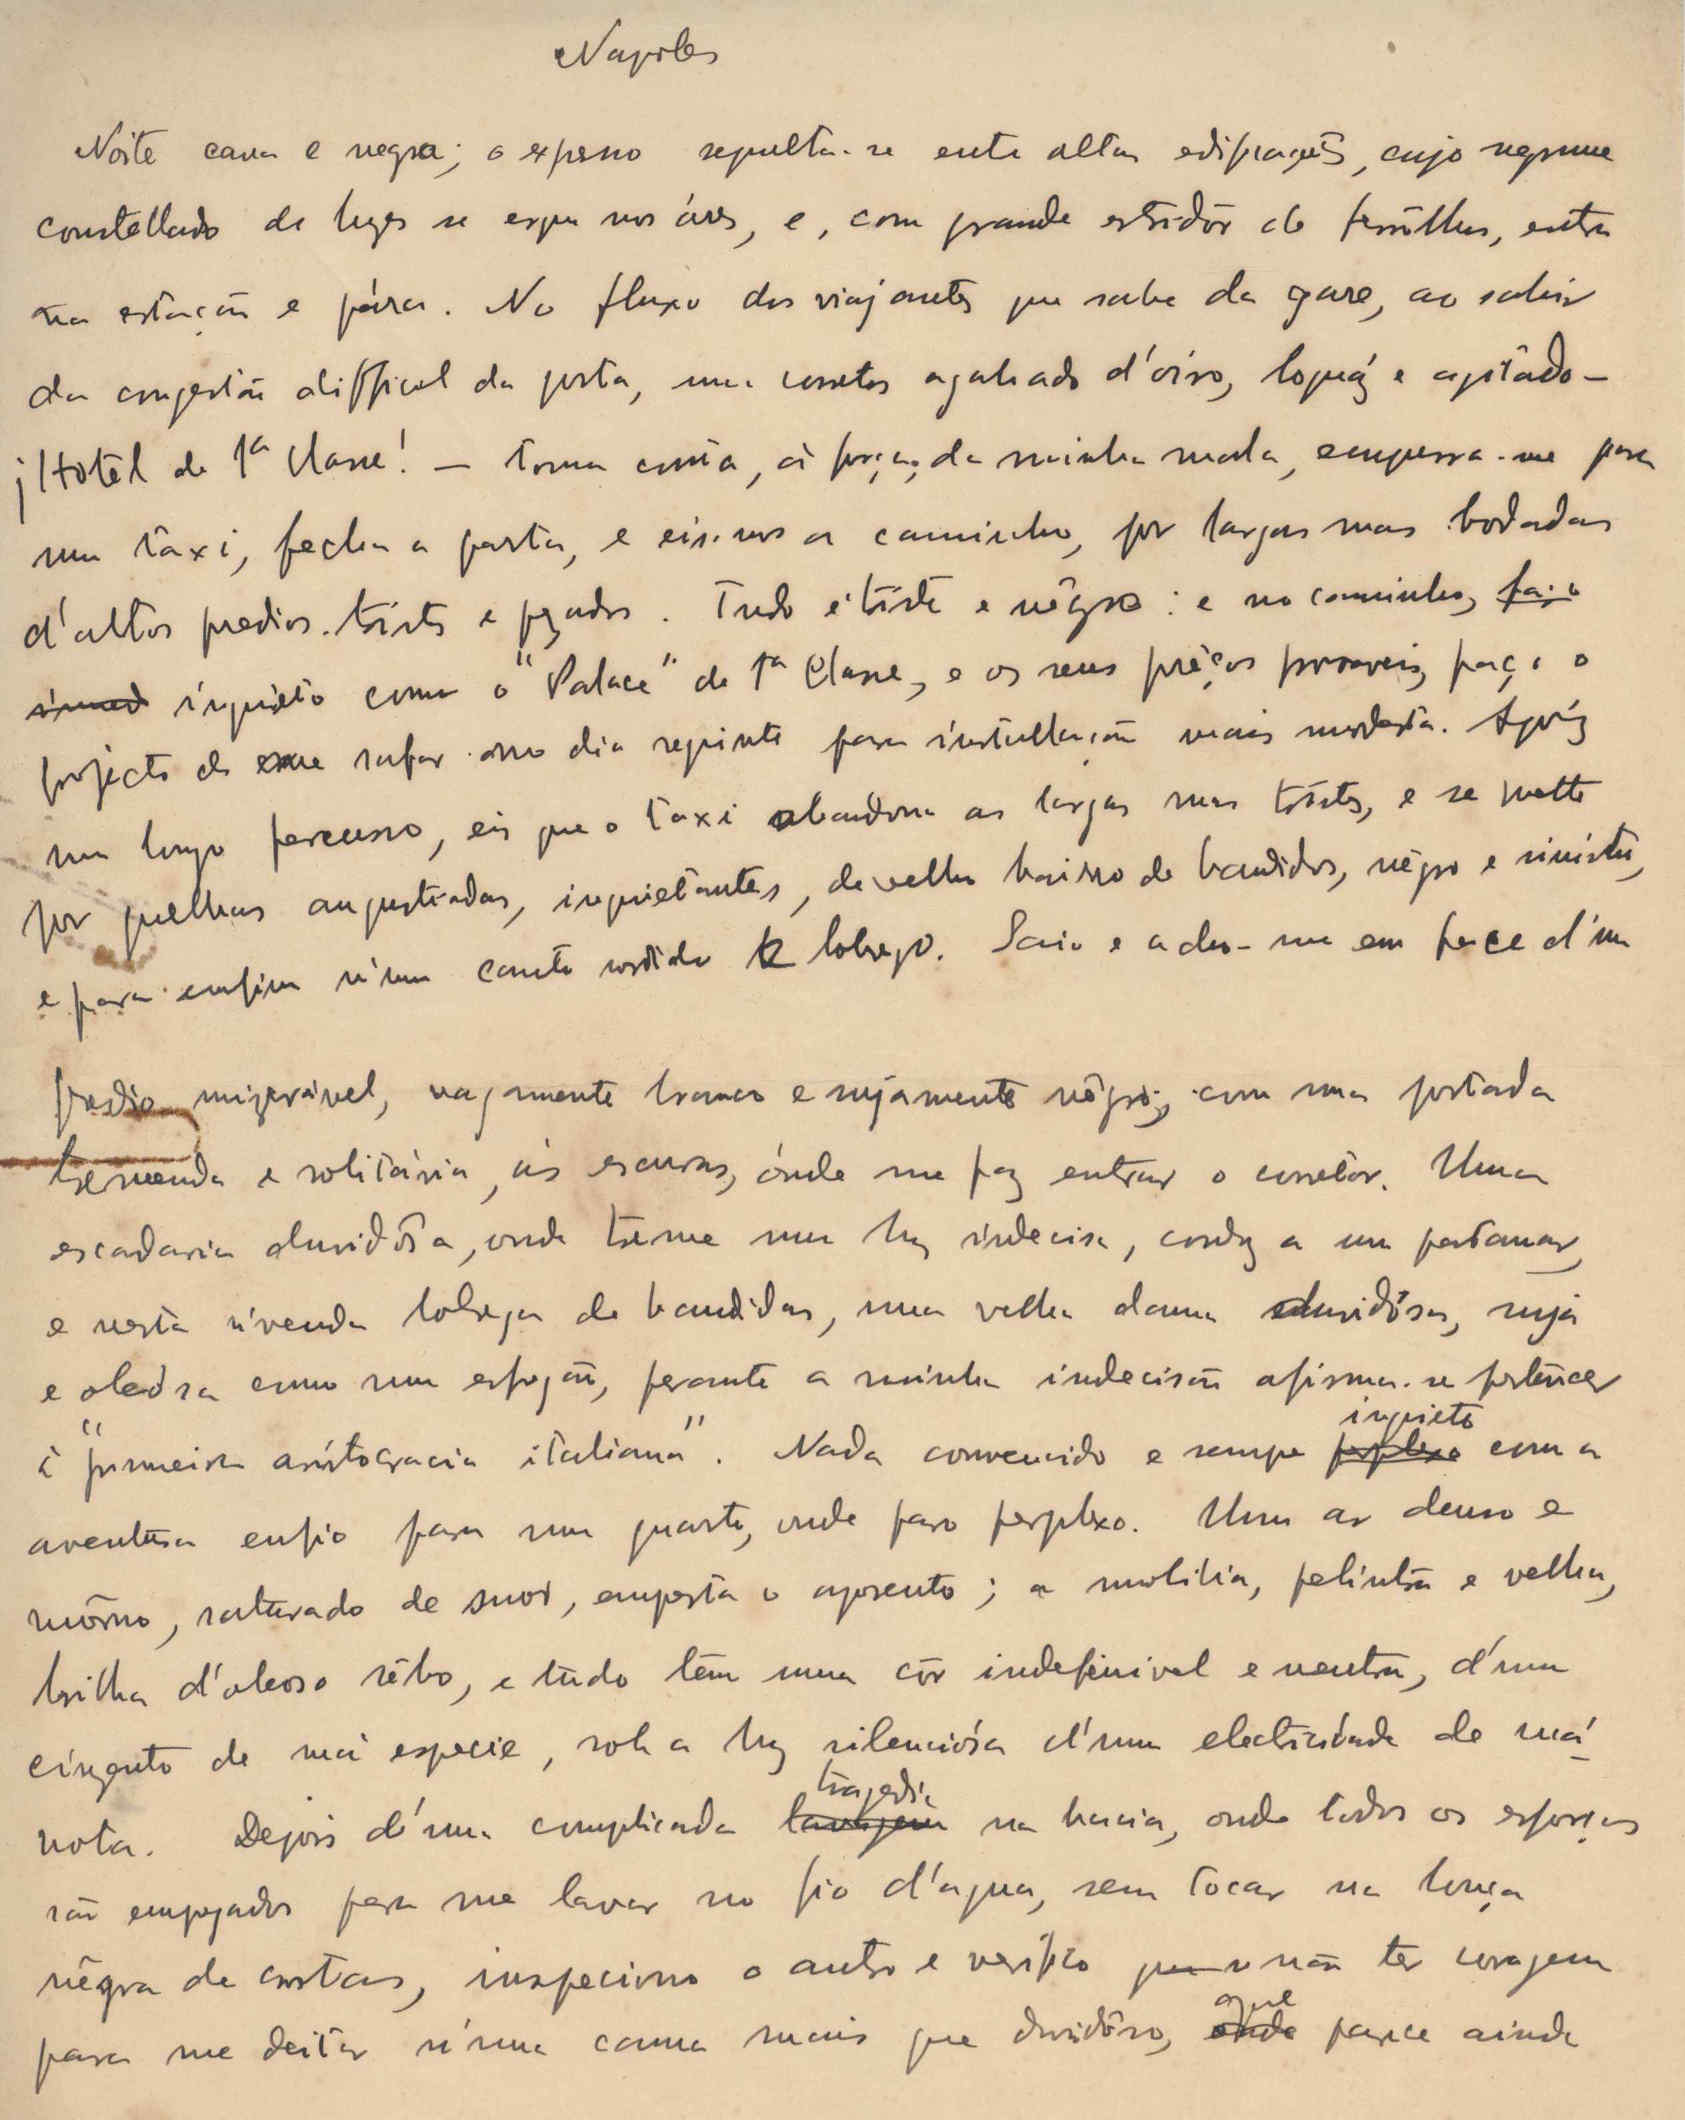 Napoles
Noite cava e negra; o expresso sepulta-se entre altas edificações, cujo negrume
constellado de luzes se ergue nos áres, e, com grande estridôr de ferrálhas, entra
na estação e pára. No fluxo dos viajantes que sahe da gare, ao sahir
da congestão difficil da porta, um corretor agaloado d'óiro, loquáz e agitádo–
¡Hotel de 1ª Classe! – toma conta, á força, da minha mala, empurra-me para
um táxi, fecha a porta, e eis-nos a caminho, por largas ruas bordadas
d'altos predios tristes e pezados. Tudo é triste e nêgro: e no caminho, faço
inquieto com o "Palace" de 1ª Classe, e os seus prêços provaveis, faço o
projecto de me safar no dia seguinte para installação mais modesta. Apóz
um longo percurso, eis que o taxi abandona as largas ruas tristes, e se mette
por quelhas angustiadas, inquietantes, de velho bairro de bandidos, nêgro e sinistro,
e para emfim n'um canto sordido e lobrego. Saio e acho-me em face d'um
predio mizerável, vagamente branco e sujamente nêgro, com uma portada
tremenda e solitária, ás escuras, ónde me faz entrar o corretôr. Uma
escadaria duvidôsa, onde treme uma luz indecisa, conduz a um patamar,
e nesta vivenda lobrega de bandidos, uma velha dama duvidôsa, suja
e oleósa como um esfregão, perante a minha indecisão afirma-se pertencer
á "primeira aristocracia italiana". Nada convencido e sempre perplexo inquieto com a
aventura enfio para um quarto, onde paro perplexo. Um ar denso e
môrno, saturado de suor, empesta o aposento; a mobilia, pelintra e velha,
brilha d'oleoso sêbo, e tudo têm uma côr indefinivel e neutra, d'um
cinzento de má especie, sob a luz silenciósa d'uma electricidade de má
nota. Depois d'uma complicada lavagem tragedia na bacia, onde todos os esforços
são empregados para me lavar no fio d'agua, sem tocar na louça
nêgra de crostas, inspeciono o antro e verifico não ter coragem
para me deitar n'uma cama mais que duvidôsa, onde que parece ainda